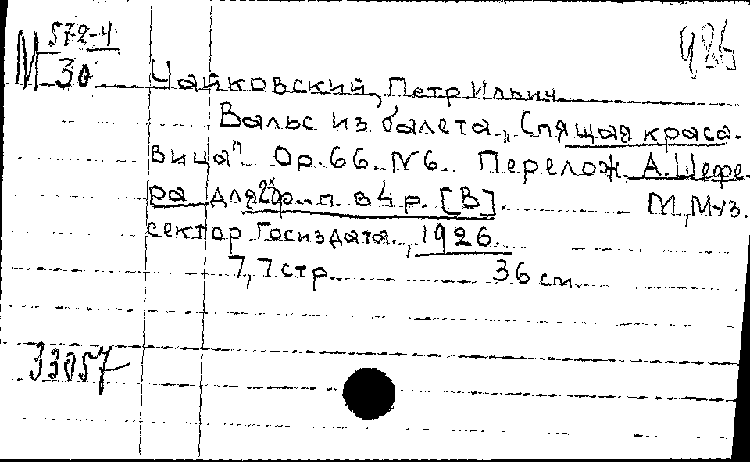 М 572-4
30
486
Чайковский, Петр Ильич
Вальс из балета „Спящая краса-
вица" Op. 66. N6. Перелож А. Шефе-
ра для 2х ф.-п. в 4 р. [В]. М, Муз.
сектор Госиздата, 1926.
7, 7 стр. 36 см.
33057